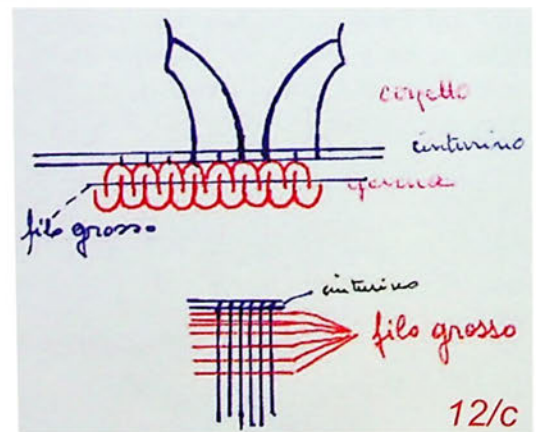 corpetto
cinturino
gonna
filo grosso
cinturino
filo grosso
12/c